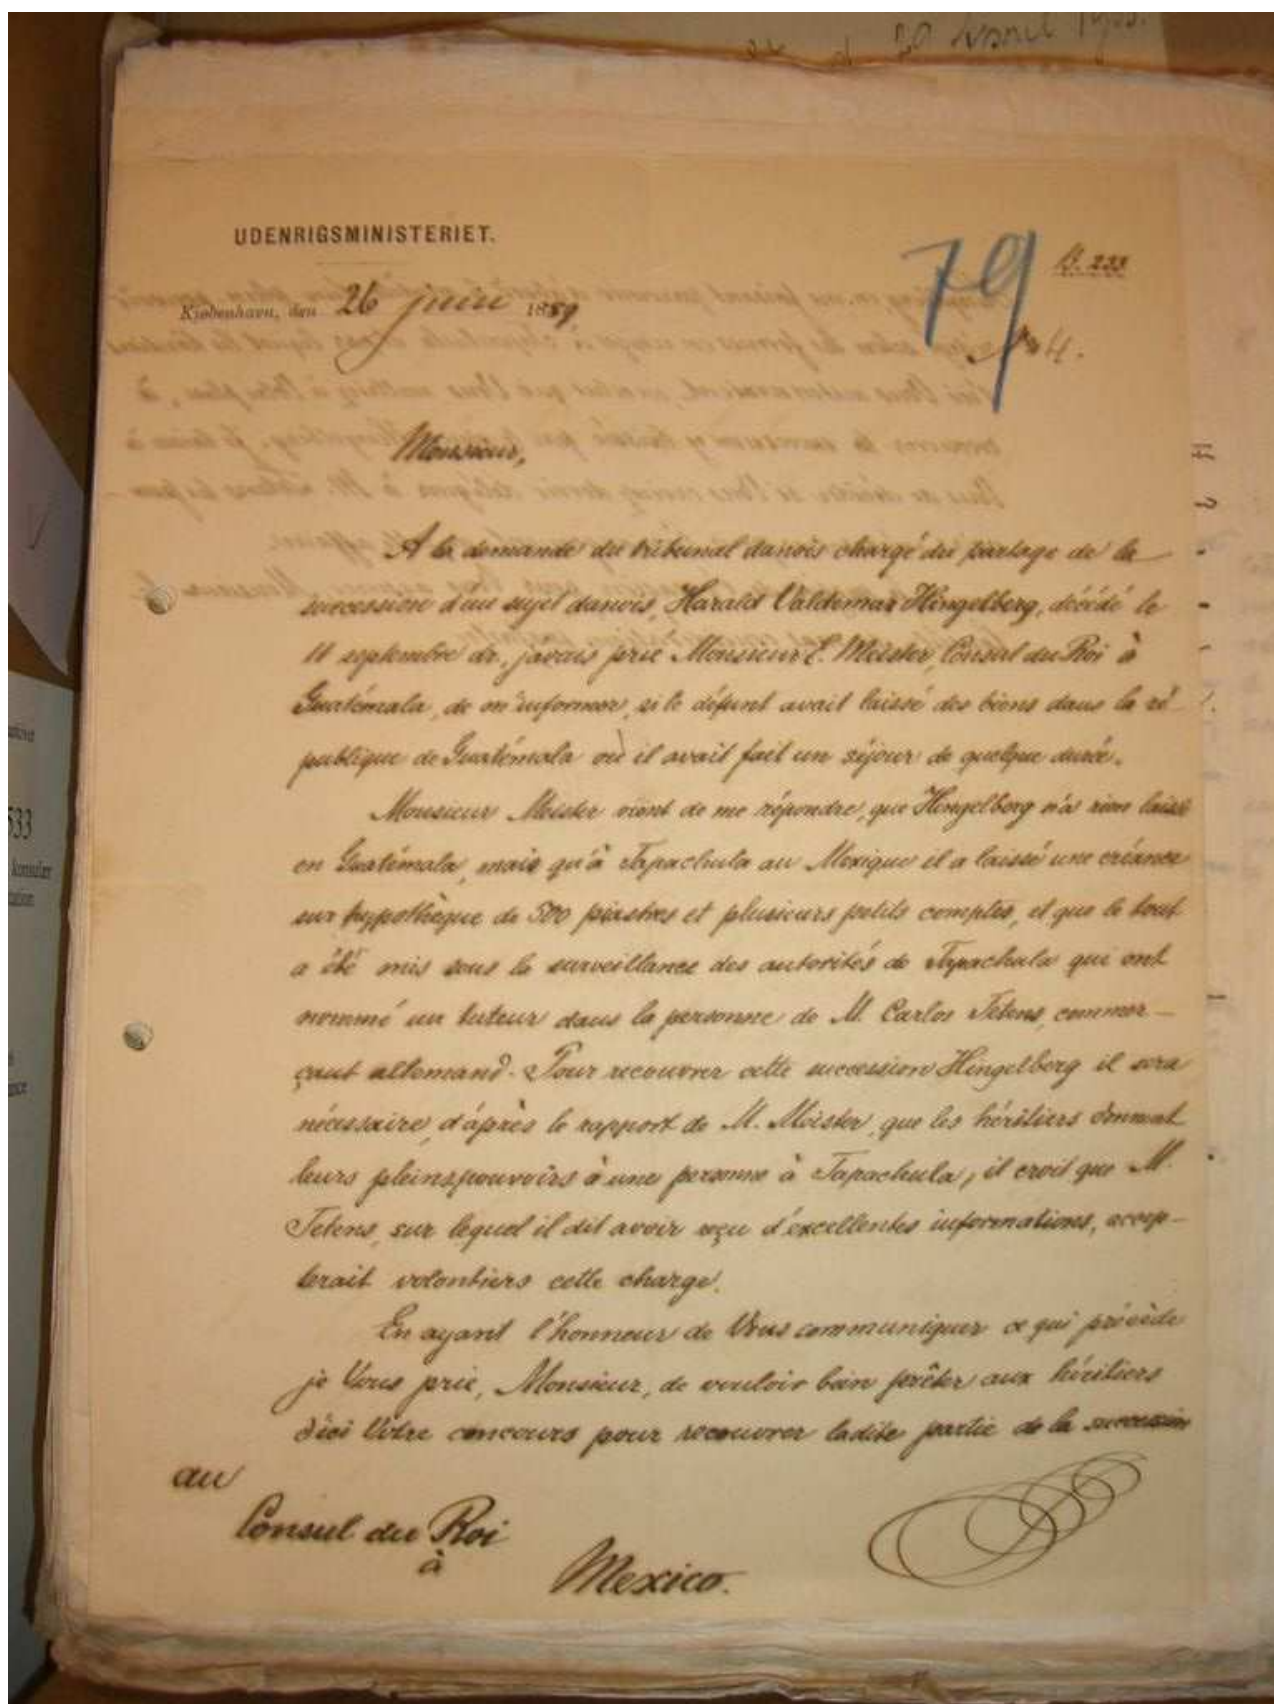 20 April 1903.
UDENRIGSMINISTERIET.
79
B. 233
Kjøbenhavn, den 26 juin 1889
No 4.
Monsieur,
A la demande du tribunal danois chargé du partage de la
succession d'un sujet danois, Harald Valdemar Hingelberg, décédé le
11 septembre dr., j'avais prié Monsieur E. Meister, Consul du Roi à
Guatémala, de m'informer, si le défunt avait laissé des biens dans la ré-
publique de Guatémala où il avait fait un séjour de quelque durée.
Monsieur Meister vient de me répondre, que Hingelberg n'a rien laissé
en Guatémala, mais qu'à Tapachula au Mexique il a laissé une créance
sur hypothèque de 500 piastres et plusieurs petits comptes, et que le tout
a été mis sous la surveillance des autorités de Tapachula qui ont
nommé un tuteur dans la personne de M. Carlos Tetens, commer-
çant allemand. Pour recouvrer cette succession Hingelberg il sera
nécessaire, d'après le rapport de M. Meister, que les héritiers donnent
leurs pleinspouvoirs à une personne à Tapachula; il croit que M.
Tetens, sur lequel il dit avoir reçu d'excellentes informations, accep-
terait volontiers cette charge.
En ayant l'honneur de Vous communiquer ce qui précède
je Vous prie, Monsieur, de vouloir bien prêter aux héritiers
d'ici Votre concours pour recouvrer ladite partie de la succession
au
Consul du Roi
à
Mexico.
533